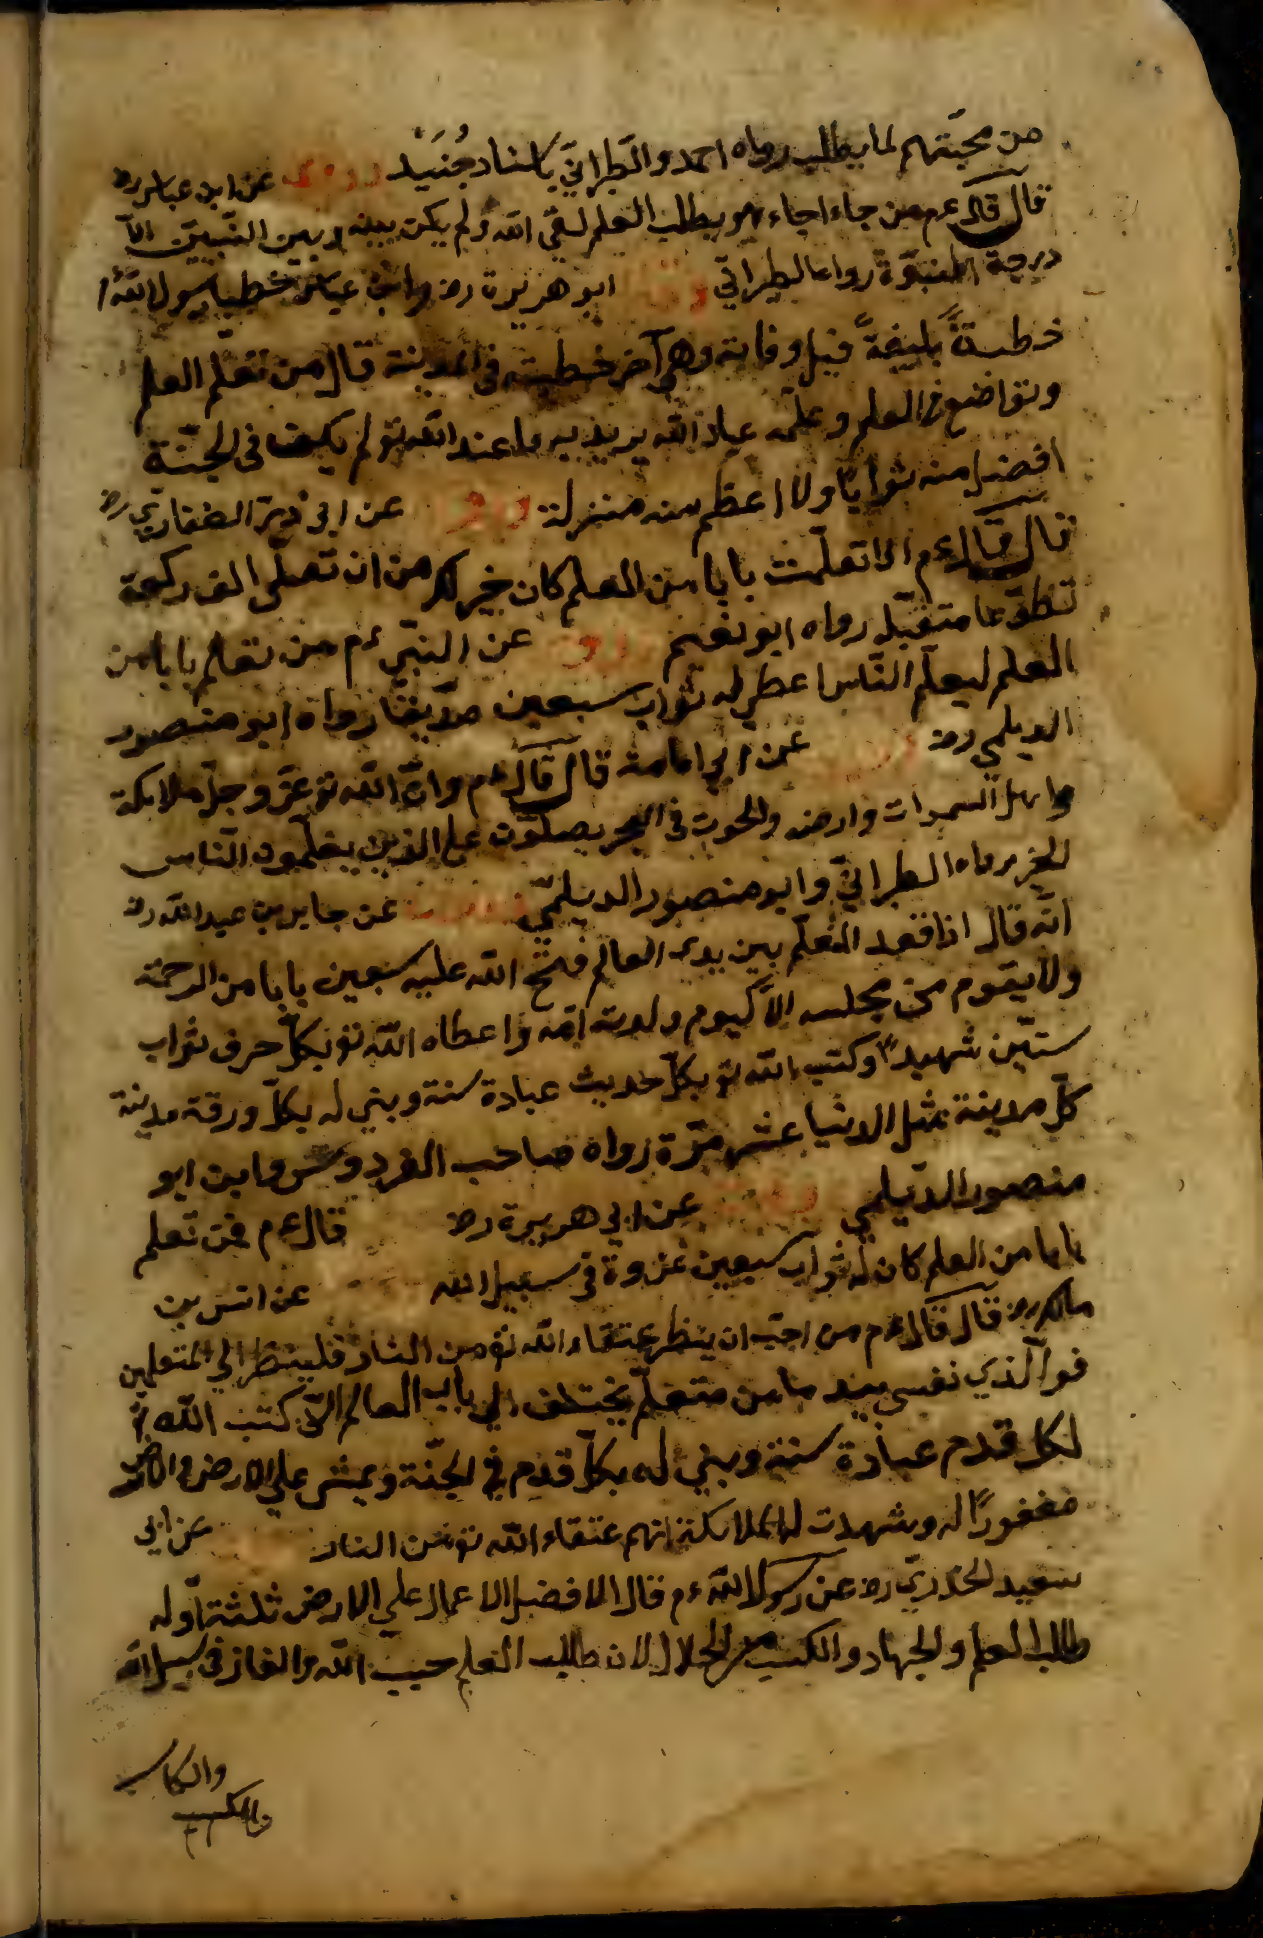 من محبتهم لما يطلب رواه احمد والطبراني باسناد جُنَيد روى عن ابن عباس رض
قال قال ءم من جاء اجاءهو يطلب العلم لقي الله ولم يكن بينه وبين النبيين الا
درجة النبوّة رواه الطبراني ابو هريرة رض وابن عباس خطب رسول الله
خطبةً بليغةً قبل وفاته وهي آخر خطبته في المدينة قال من تعلّم العلم
وتواضع في العلم وعلّمه عباد الله يريد به ما عند الله تع لم يكن في الجنّة
افضل منه ثواباً ولا اعظم منه منزلة عن ابي ذر الغفاري رض
قال قال ءم اذا تعلّمت بابا من العلم كان خير لك من ان تصلّي الف ركعة
تطوّعا متقبّلة رواه ابو نعيم روى عن النبي ءم من تعلم بابا من
العلم ليعلّم النّاس اعطي له ثواب سبعين صدّيقا رواه ابو منصور
الديلمي رض عن ابي امامة قال قال ءم وانّ الله تع عزّ وجلّ ملائكة
واهل السموات وارضه والحوت في البحر يصلّون على الذين يعلّمون النّاس
الخير رواه الطبراني وابو منصور الديلمّي عن جابر بن عبد الله رض
انّه قال اذا قعد المتعلّم بين يدي العالم فتح الله عليه سبعين بابا من الرحمة
ولا يقوم من مجلسه الاّ كيوم ولدته امّه واعطاه الله تع بكلّ حرف ثواب
ستّين شهيداً وكتب الله تع بكلّ حديث عبادة سنة وبني له بكلّ ورقة مدينة
كلّ مدينة مثل الدنيا عشر مرّة رواه صاحب الفردوس وابن ابو
منصور الدّيلمي عن ابي هريرة رض قال ءم من تعلم
بابا من العلم كان له ثواب سبعين غزوة في سبيل الله عن انس بن
مالك رض قال قال ءم من احبّ ان ينظر عتقاء الله تع من النار فلينظر الي المتعلمين
فوالّذي نفسي بيده ما من متعلّم يختلف الي باب العالم الاّ كتب الله تع
لكل قدم عبادة سنة وبني له بكلّ قدم في الجنّة ويمشي علي الارض والارض
مغفورًا له وشهدت له الملائكة انهم عتقاء الله تع من النار عن ابي
سعيد الخدريّ رض عن رسول الله ءم قال الا افضل الاعمال علي الارض ثلثة اوله
طلب العلم والجهاد والكسب من الحلال لان طالب العلم حبيب الله والغاز في سبيل الله
والكاسب
والكسب